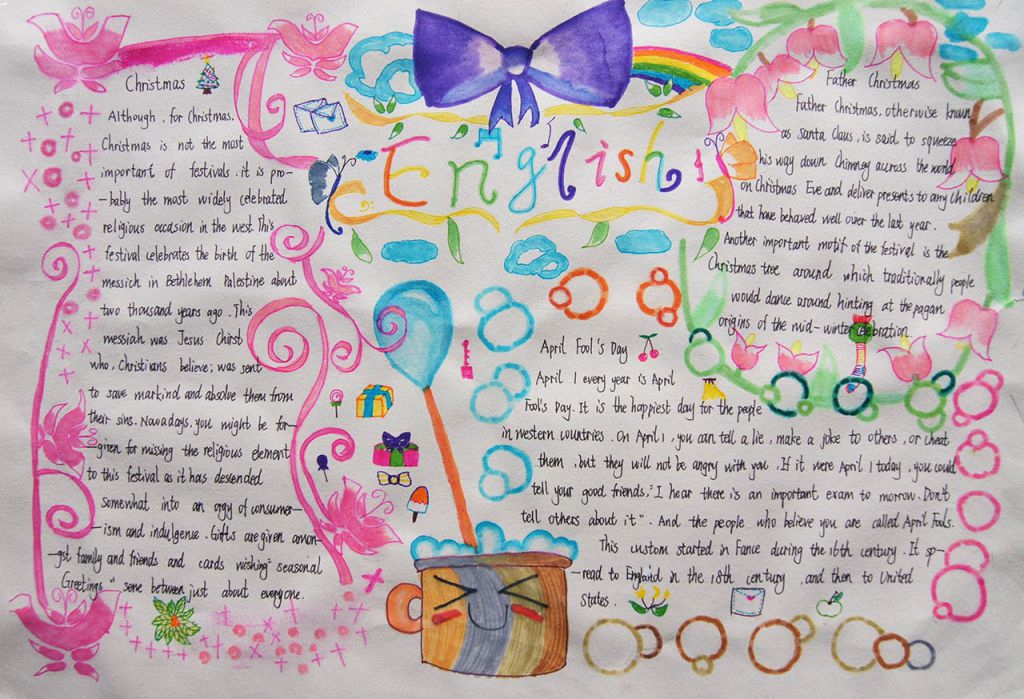 English
Christmas
Although, for Christmas.
Christmas is not the most
important of festivals. it is pro-
-bably the most widely celebrated
religious occasion in the west. This
festival celebrates the birth of the
messich in Bethlehem Palestine about
two thousand years ago. This
messiah was Jesus Chirst
who, Christians believe; was sent
to save markind and absolve them from
their sins. Nowadays, you might be for-
-given for missing the religious element
to this festival as it has desended
somewhat into an orgy of consumer-
-ism and indulgence. Gifts are given amon-
-gst family and friends and cards wishing "seasonal
Greetings" sene between just about everyone.
Father Christmas
Father Christmas, otherwise known
as santa claus, is said to squeeze
his way down Chimney accross the world
on Christmas Eve and deliver presents to any children
that have behaved well over the last year.
Another important motif of the festival is the
Christmas tree around which traditionally people
would dance around hinting at the pagan
origins of the mid-winter celebration
April Fool's Day
April 1 every year is April
Fool's Day. It is the happiest day for the people
in western countries. On April 1, you can tell a lie, make a joke to others, or cheat
them, but they will not be angry with you. If it were April 1 today, you could
tell your good friends, "I hear there is an important exam to morrow. Don't
tell others about it". And the people who believe you are called April Fools.
This custom started in Fance during the 16th century. It sp-
-read to England in the 18th century, and then to United
States.